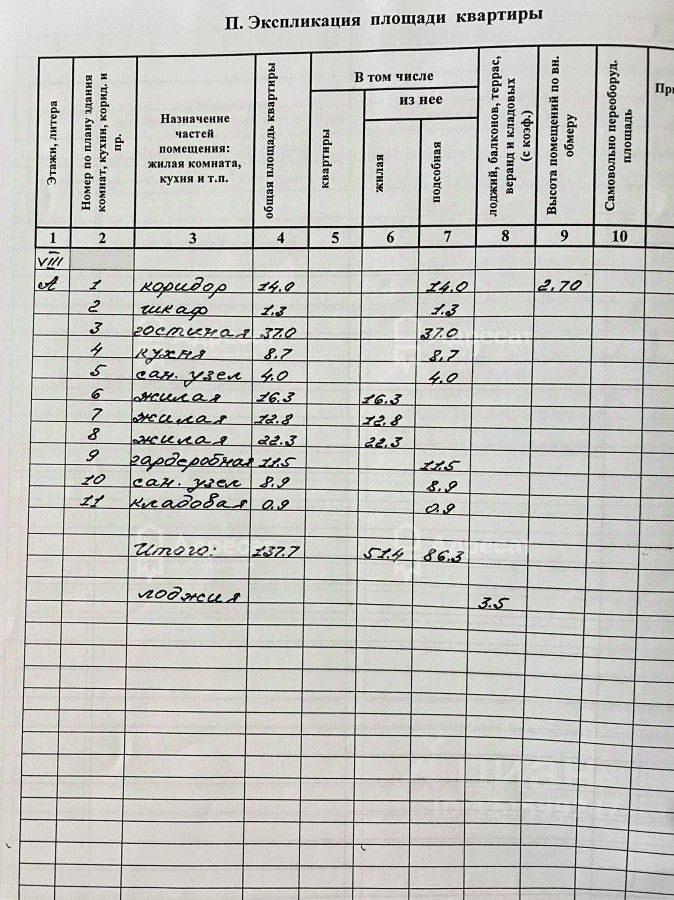 П. Экспликация площади квартиры
Этажи, литера
Номер по плану здания комнат, кухни, корид. и пр.
Назначение
частей
помещения:
жилая комната,
кухня и т.п.
общая площадь квартиры
В том числе
квартиры
из нее
жилая
подсобная
лоджий, балконов, террас, веранд и кладовых (с коэф.)
Высота помещений по вн. обмеру
Самовольно переоборуд. площадь
1 2 3 4 5 6 7 8 9 10
VIII
А 1 коридор 14.0 14.0 2.70
2 шкаф 1.3 1.3
3 гостиная 37.0 37.0
4 кухня 8.7 8.7
5 сан. узел 4.0 4.0
6 жилая 16.3 16.3
7 жилая 12.8 12.8
8 жилая 22.3 22.3
9 гардеробная 11.5 11.5
10 сан. узел 8.9 8.9
11 кладовая 0.9 0.9
Итого: 137.7 51.4 86.3
лоджия 3.5